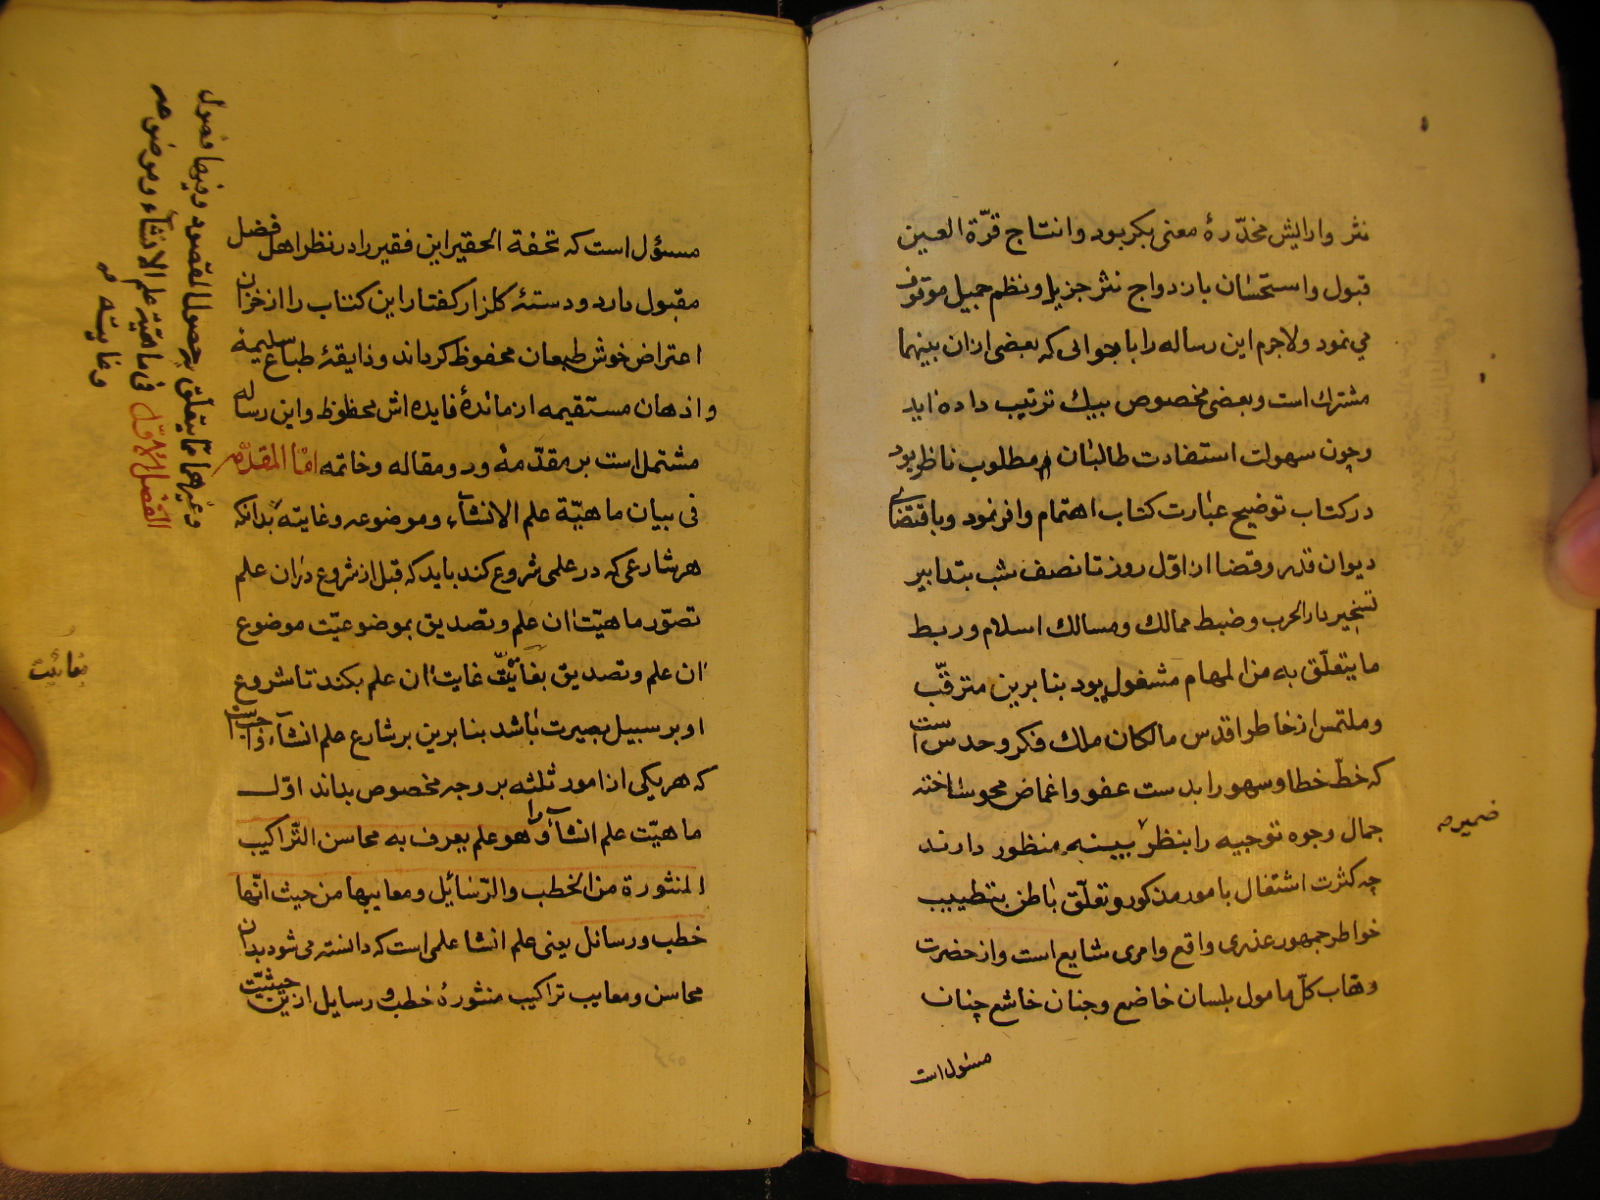 نثر وارایش مخدّرهٔ معنی بکر بود وانتاج قرّة العین
قبول واستحسان بازدواج نثر جزیل ونظم جمیل موقوف
می نمود ولاجرم این رساله را بابوابی که بعضی ازان بینهما
مشترک است وبعضی مخصوص بیک ترتیب داده اید
وچون سهولت استفادت طالبان مطلوب ناظر بود
در کتاب توضیح عبارت کتاب اهتمام وافر نمود وباقتضای
دیوان قدر وقضا از اوّل روز تا نصف شب بتدابیر
تسخیر دار الحرب وضبط ممالک ومسالک اسلام وربط
ما یتعلّق به من المهام مشغول بود بنا برین مترقّب
وملتمس از خاطر اقدس مالکان ملک فکر وحدس است
که خطّ خطا وسهو را بدست عفو واغماض محو ساخته
جمال وجوه توجیه را بنظر منظور دارند
ضمیر صه
چه کثرت اشتغال بامور مذکور وتعلّق باطن بتطییب
خواطر جمهور عذری واقع وامری شایع است واز حضرت
وهّاب کلّ مامول بلسان خاضع وجنان خاشع چنان
مسئول است
مسؤل است که تحفة الحقیر این فقیر را در نظر اهل فضل
مقبول دارد ودستهٔ کلزار کفتار این کتاب را از خزان
اعتراض خوش طبعان محفوظ کرداند وذایقهٔ طباع سلیمه
واذهان مستقیمه از مائدهٔ فایده اش محظوظ واین رساله
مشتمل است بر مقدّمهٔ ودو مقاله وخاتمه امّا المقدّمه
فی بیان ماهیّة علم الانشآء وموضوعه وغایته بدانکه
هر شارعی که در علمی شروع کند باید که قبل از شروع دران علم
تصوّر ماهیّت ان علم وتصدیق بموضوعیّت موضوع
ان علم وتصدیق بغائیّت غایت ان علم بکند تا شروع
او بر سبیل بصیرت باشد بنا برین بر شارع علم انشآء واجب است
که هر یکی از امور ثلثه بر وجه مخصوص بداند اوّل
ماهیّت علم انشآء را وهو علم یعرف به محاسن التّراکیب
المنثورة من الخطب والرّسائل ومعایبها من حیث انّها
خطب ورسائل یعنی علم انشا علمی است که دانسته می شود بدان
محاسن ومعایب تراکیب منثورهٔ خطب ورسایل ازین حیثیّت
وفیها فصول
وغیرها ممّا یتعلّق بحصول المقصود
الفصل الاوّل فی ماهیّة علم الانشآء وموضوعه
وغایته صه
بغائیت